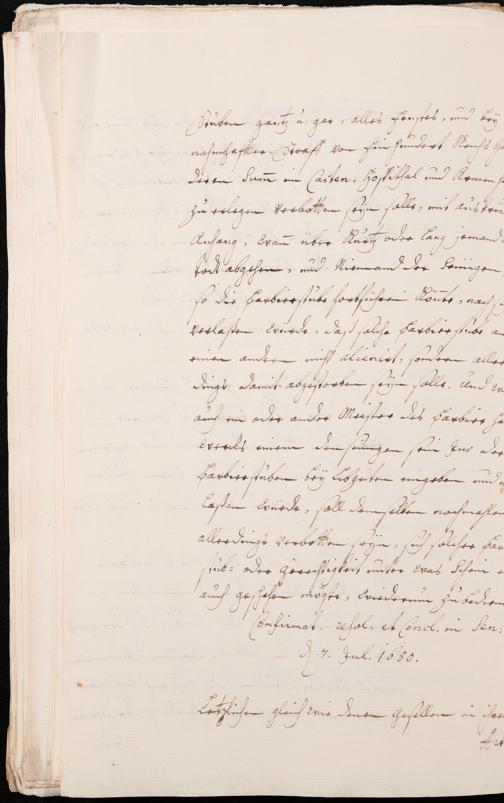 Stuben gantz u. gar, alles Ernstes, und bey
nahmhaffter Straff von Ein hundert Reichs
deren Sum̄ in Casten: Hospithal und Armen
zu erlegen verbotten seyn solle, mit
Anhang, Wan̄ über Kurtz oder lang jemand
todt abgehen, und Niemand der Seinigen
so die Barbierstube fortführen Kön̄te, nach
verlaßen würde, daß solche Barbierstube
einem andern nicht alienirt, sondern aller
dings damit abgestorben seyn solle. Und
auch ein oder ander Meister des Barbier
Wercks einem den seinigen sein Jus der
Barbierstuben bey Lebzeiten eingeben und
laßen würde, soll demselben nachmahlen
allerdings verbotten seyn, sich solcher
stub- oder Gerechtigkeit unter was Schein
auch geschehen mögte, wiederum zu
Confirmat: resol: et Concl. in Sen:
d. 7. Jul. 1680.
Letzlichen gleich wie denen Gesellen in